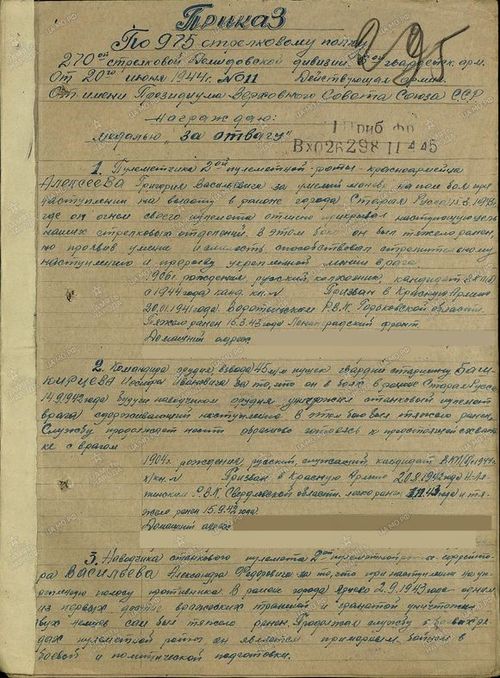 Приказ
По 975 стрелковому полку
270ой стрелковой Демидовской дивизии 6ой гвардейск. арм.
От 20го июня 1944г. №011 Действующая армия.
От имени Президиума Верховного Совета Союза ССР
награждаю:
медалью "за отвагу"
Вх026298 11 45
1. Пулеметчика 2ой пулеметной роты красноармейца
Алексеева Григория Васильевича за умелый на поле боя при
наступлении на высоту в районе города Старая Русса 15.3.1943г
где он огнем своего пулемета отлично прикрывал наступающие
наших стрелковых отделений. В этом бою он был тяжело ранен,
но проявив умение и смелость способствовал стремительному
наступлению и прорыву укрепленной линии врага
1906г. рождения, русский, колхозник, кандидат ВКП(б)
с 1944 года канд. кн. № Призван в Красную Армию
20.01.1941 года РВК Горьковской области.
Тяжело ранен 15.3.43 года Ленинградский фронт
Домашний адрес
2. Командира орудия взвода 45мм пушек гвардии старшину
Ивановича за то, что он в боях в районе Старая Русса
14.9.1942 года будучи наводчиком орудия уничтожил станковый пулемет
врага сдерживающий наступление. В этом бою был тяжело ранен.
Службу продолжает нести образцово готовясь к предстоящей схват-
ке с врагом
1904г. рождения, русский, служащий, кандидат ВКП(б) с 1944г.
к/кн. № Призван в Красную Армию 20.8.1942 года
РВК. Свердловской области, легко ранен 43 года и тя-
жело ранен 15.9.42 года
Домашний адрес
3. Наводчика станкового пулемета 2ой пулеметной роты ефрейто-
ра Васильева Александра Федоровича за то, что при наступлении на ук-
репленную полосу противника в районе города 2.9.1943 года одним
из первых достиг вражеских траншей и гранатой уничтожил
двух немцев сам был тяжело ранен. Продолжая службу в
дах пулеметной роты он является примерным бойцом в
боевой и политической подготовки.